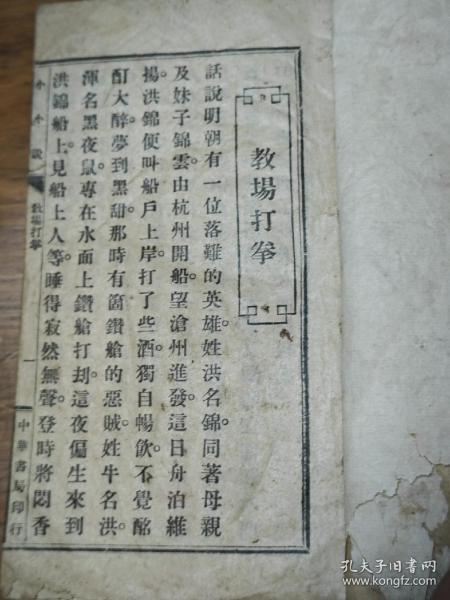 教場打拳
話說明朝有一位落難的英雄。姓洪名錦。同著母親
及妹子錦雲。由杭州開船。望滄州進發。這日舟泊維
揚。洪錦便叫船戶上岸。打了些酒。獨自暢飲。不覺酩
酊大醉。夢到黑甜。那時有箇鑽艙的惡賊。姓牛名洪。
渾名黑夜鼠。專在水面上鑽艙打刦。這夜偏生來到
洪錦船上。見船上人等。睡得寂然無聲。登時將悶香
小小說
教場打拳
一
中華書局印行
孔夫子旧书网
www.kongfz.com